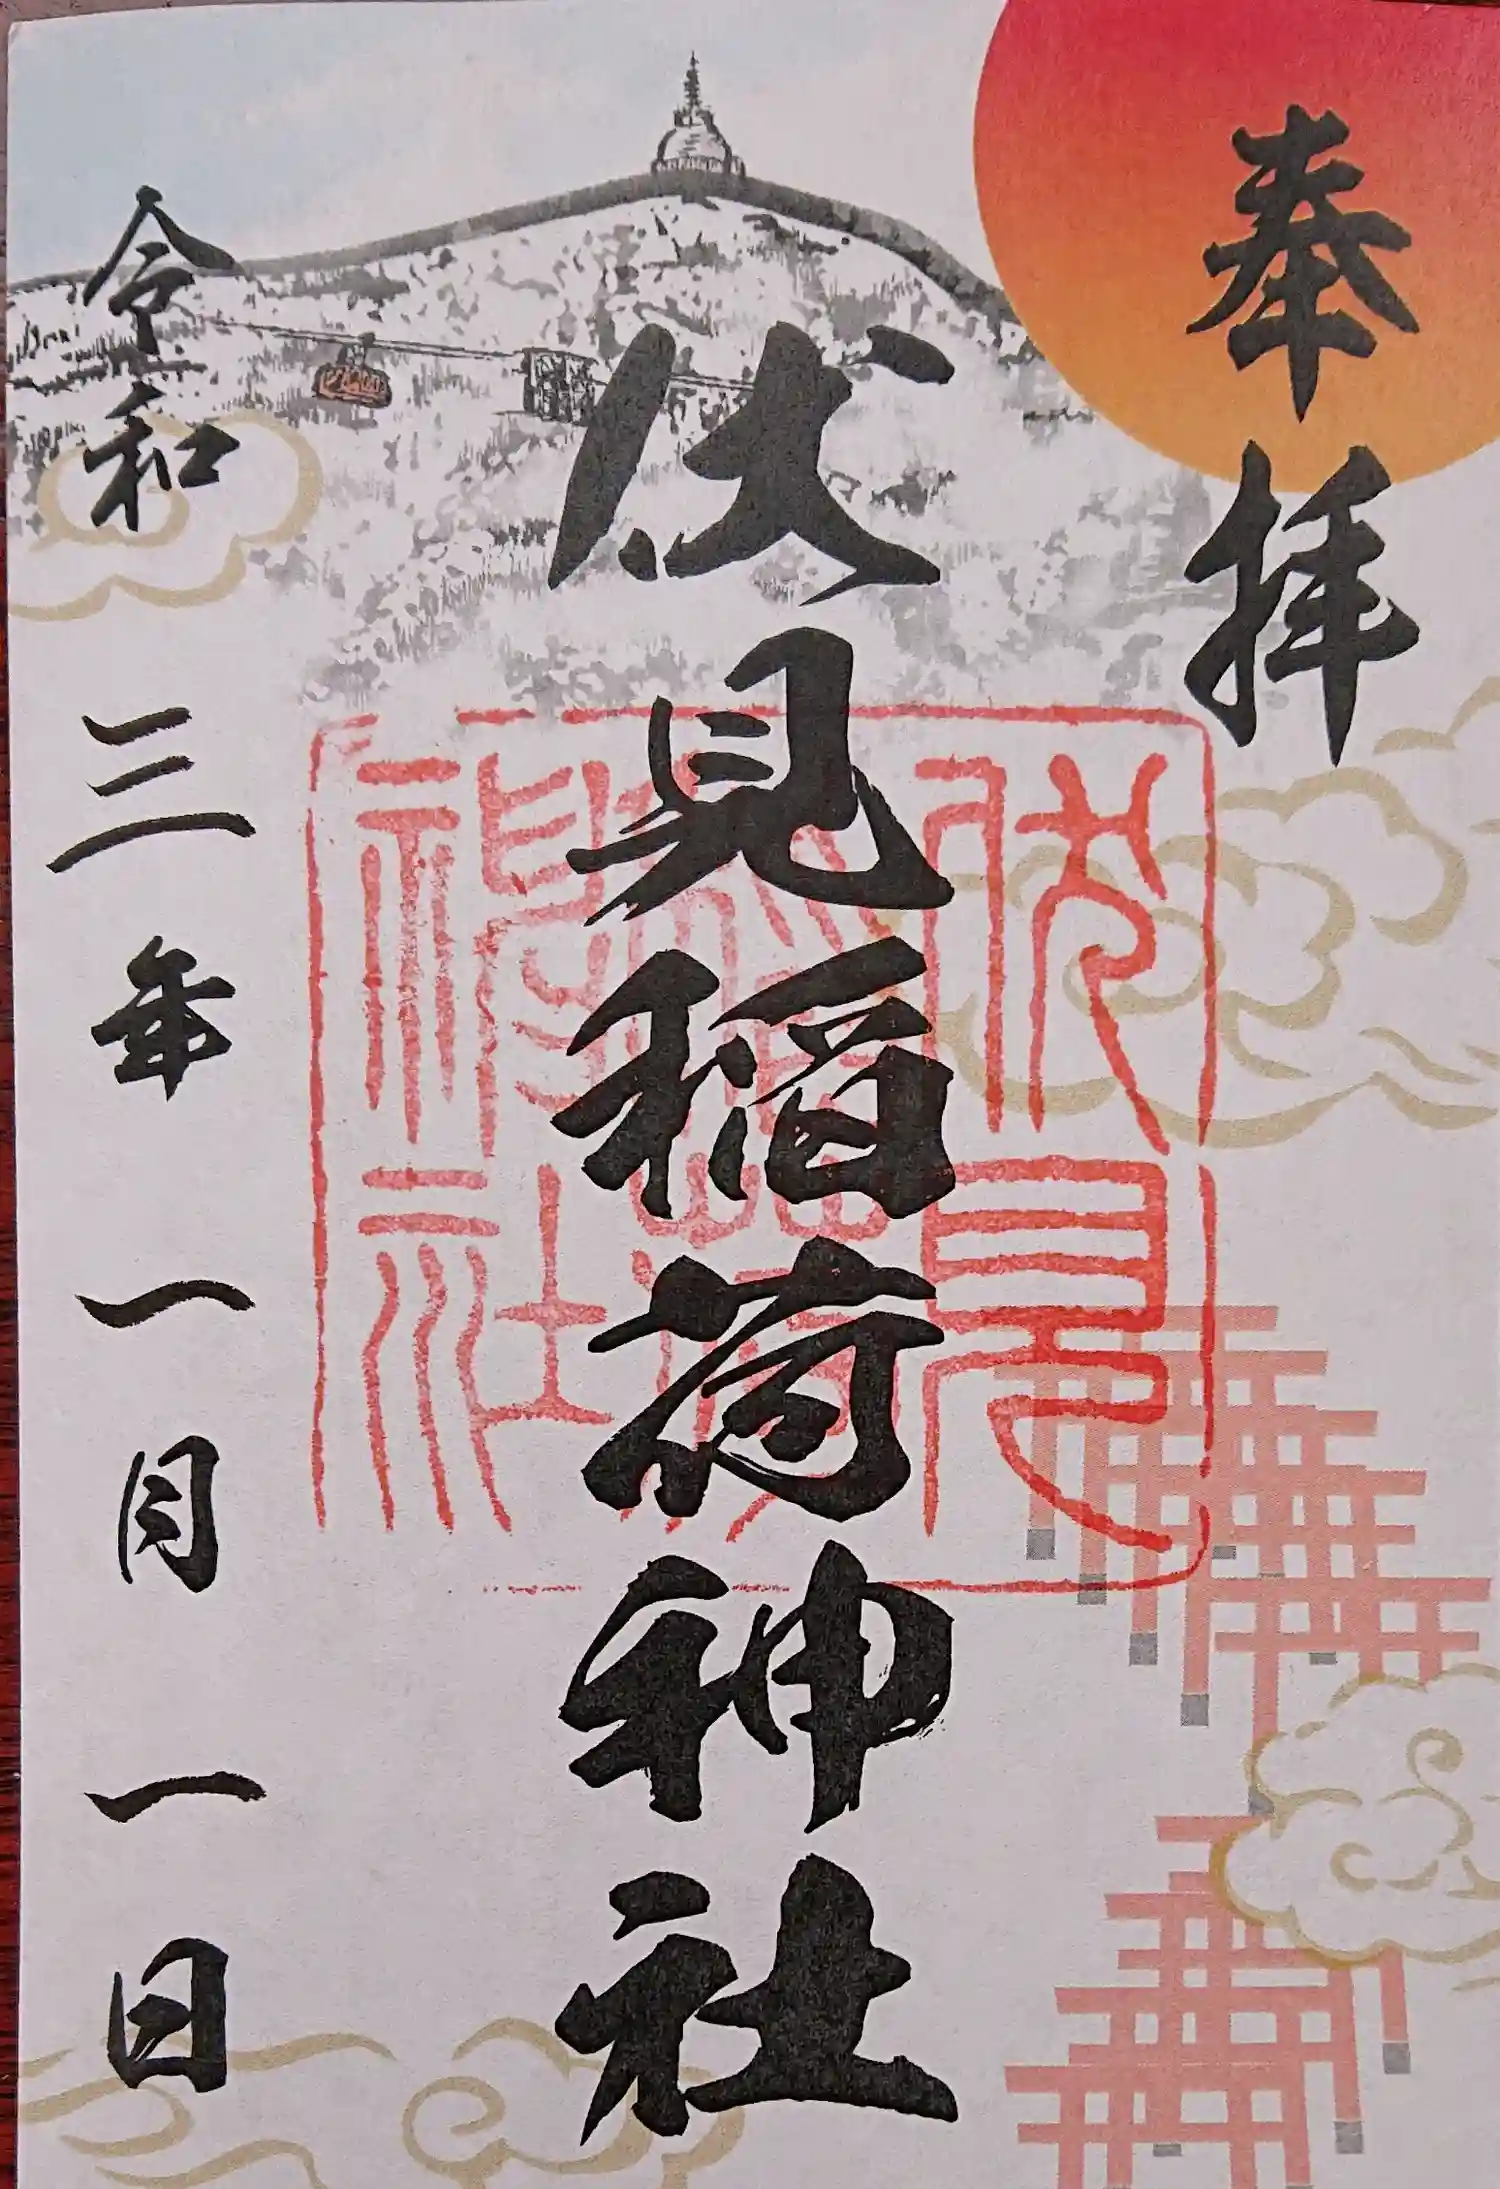 奉拝
伏見稲荷神社
伏見
稲荷
神社
令和三年一月一日